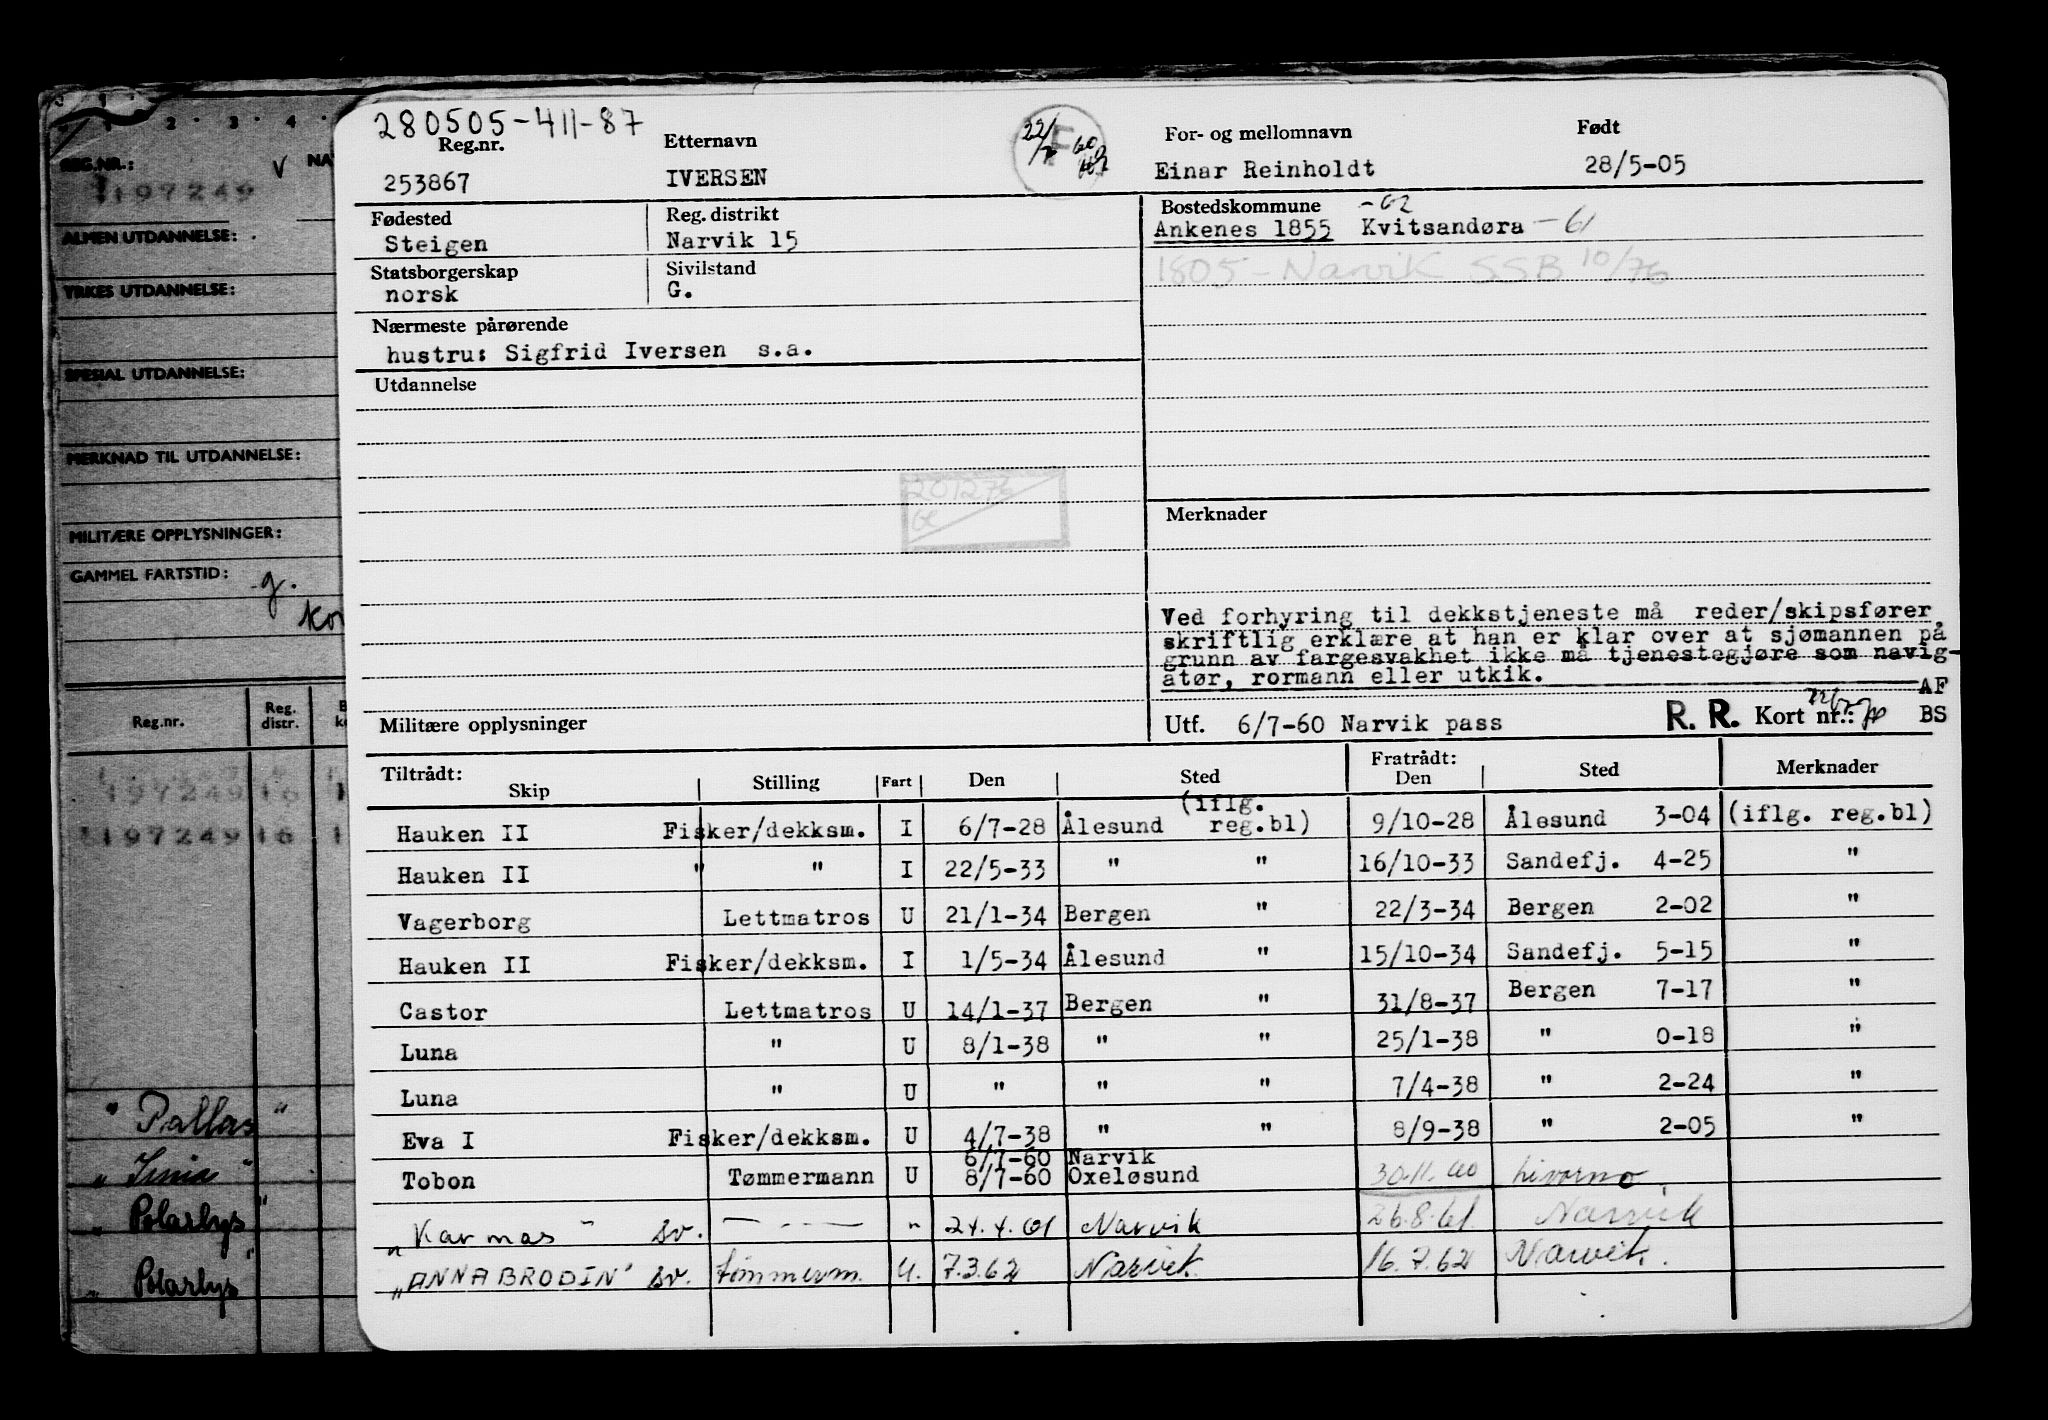 280505-411-87
Reg.nr. Etternavn For- og mellomnavn Født
253867 IVERSEN Einar Reinholdt 28/5-05
Fødested Reg. distrikt Bostedskommune -62
Steigen Narvik 15 Ankenes 1855 Kvitsandøra -61
Statsborgerskap Sivilstand 1805 - Narvik SSB 10/76
norsk G.
Nærmeste pårørende
hustru: Sigfrid Iversen s.a.
Utdannelse
Merknader
Ved forhyring til dekkstjeneste må reder/skipsfører
skriftlig erklære at han er klar over at sjømannen på
grunn av fargesvakhet ikke må tjenestegjøre som navig-
atør, rormann eller utkik.
AF
Militære opplysninger Utf. 6/7-60 Narvik pass R. R. Kort nr.: BS
Tiltrådt: Fratrådt:
Skip Stilling Fart Den Sted Den Sted Merknader
Hauken II Fisker/dekksm. I 6/7-28 Ålesund (iflg. reg.bl) 9/10-28 Ålesund 3-04 (iflg. reg.bl)
Hauken II " " I 22/5-33 " " 16/10-33 Sandefj. 4-25 "
Vagerborg Lettmatros U 21/1-34 Bergen " 22/3-34 Bergen 2-02 "
Hauken II Fisker/dekksm. I 1/5-34 Ålesund " 15/10-34 Sandefj. 5-15 "
Castor Lettmatros U 14/1-37 Bergen " 31/8-37 Bergen 7-17 "
Luna " U 8/1-38 " " 25/1-38 " 0-18 "
Luna " U " " " 7/4-38 " 2-24 "
Eva I Fisker/dekksm. U 4/7-38 " " 8/9-38 " 2-05 "
6/7-60 Narvik
Tobon Tømmermann U 8/7-60 Oxeløsund 30.11.60 Livorno
"Karmas" sv. — - — " 24.4.61 Narvik 26.8.61 Narvik
"ANNA BRODIN" sv. tømmerm. U. 7.3.62 Narvik 16.7.62 Narvik.
1 2 3 4
REG.NR.: V NA
197249
ALMEN UTDANNELSE:
YRKES UTDANNELSE:
SPESIAL UTDANNELSE:
MERKNAD TIL UTDANNELSE:
MILITÆRE OPPLYSNINGER:
GAMMEL FARTSTID: g.
Reg.nr. Reg. distr.
197249 16 1
197249 16 1
" Pallas "
" Polarlys "
" Polarlys "